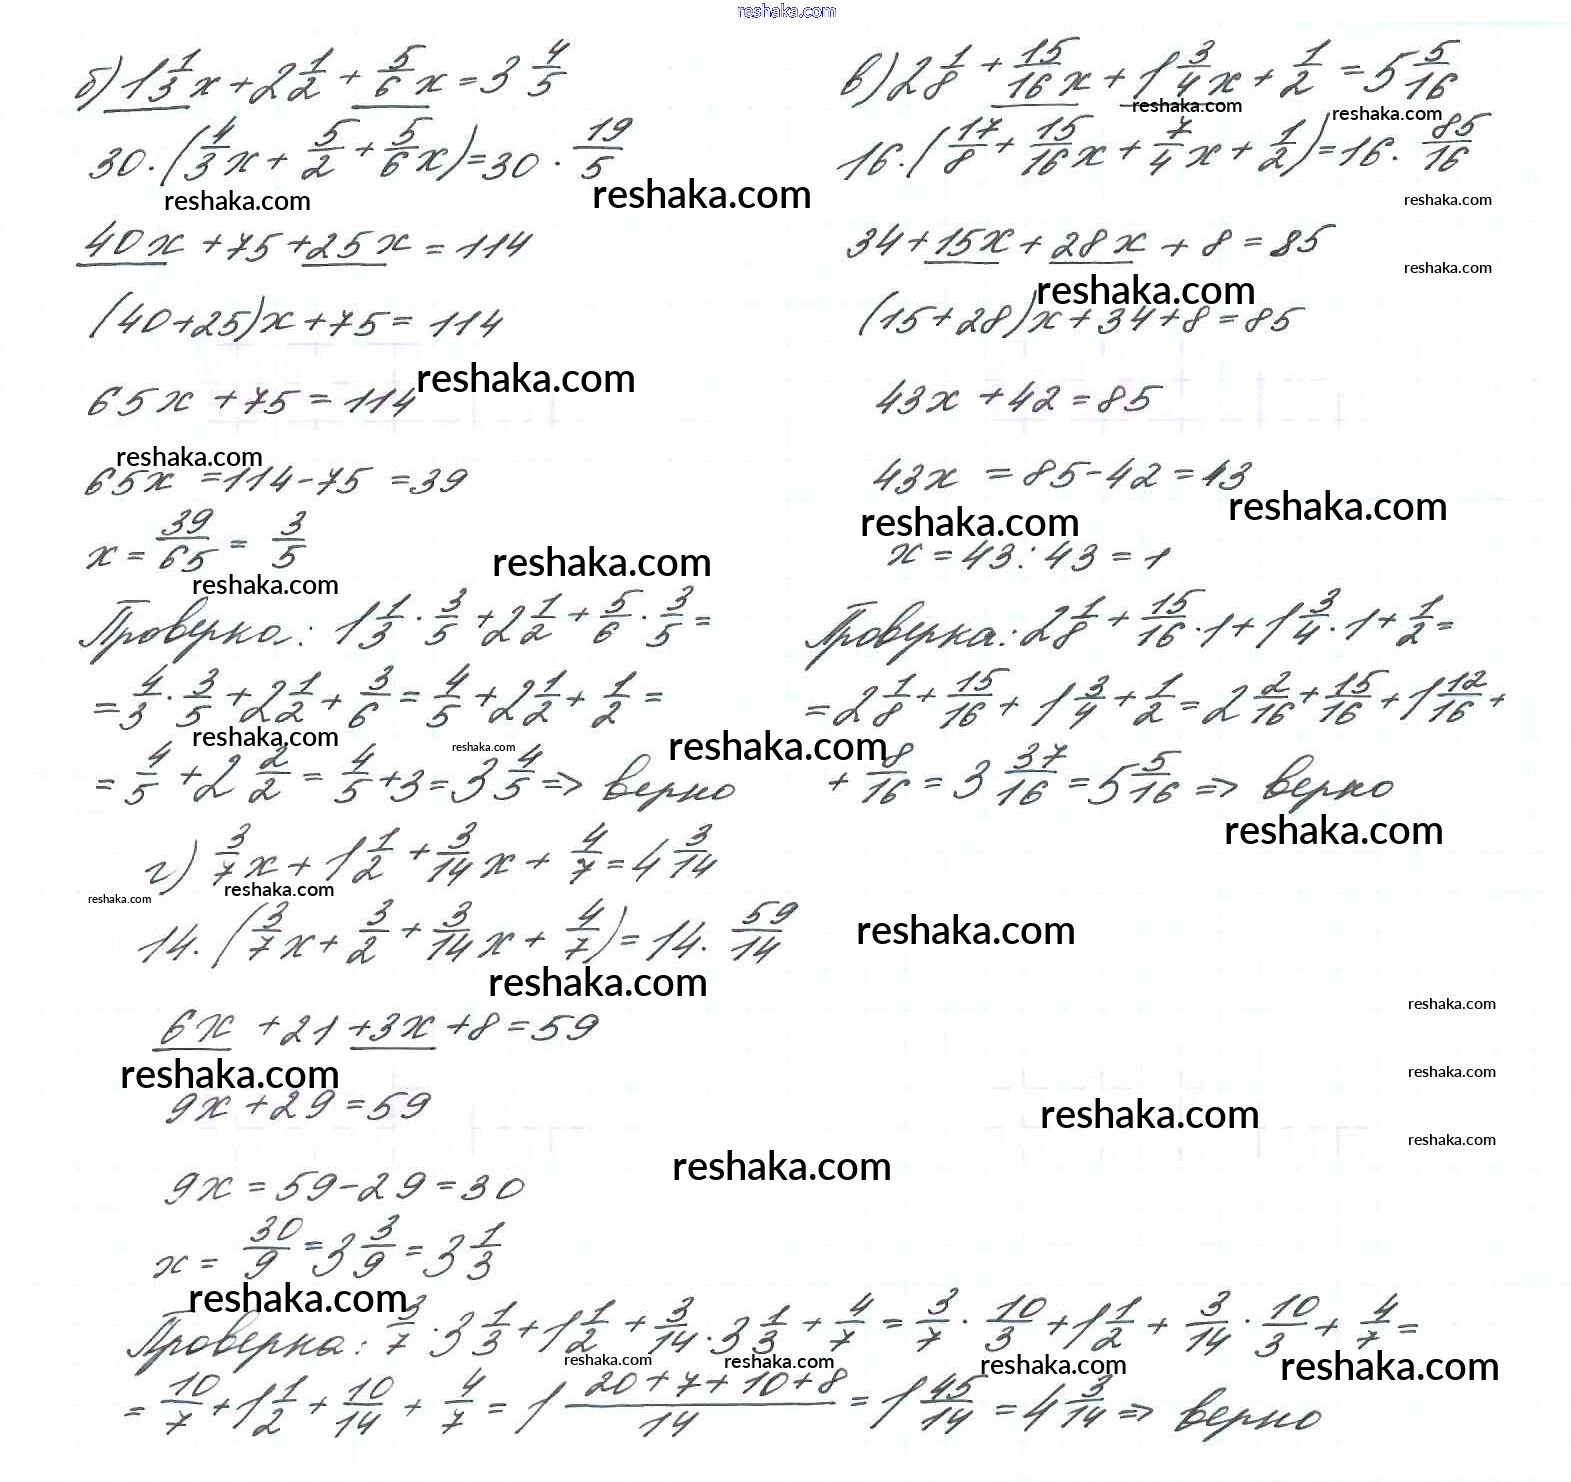 reshaka.com
б) 1 1/3 x + 2 1/2 + 5/6 x = 3 4/5
30 · (4/3 x + 5/2 + 5/6 x) = 30 · 19/5
reshaka.com reshaka.com
40x + 75 + 25x = 114
(40+25)x + 75 = 114
reshaka.com
65x + 75 = 114
reshaka.com
65x = 114 - 75 = 39
x = 39/65 = 3/5
reshaka.com
reshaka.com
Проверка: 1 1/3 · 3/5 + 2 1/2 + 5/6 · 3/5 =
= 4/3 · 3/5 + 2 1/2 + 3/6 = 4/5 + 2 1/2 + 1/2 =
reshaka.com reshaka.com reshaka.com
= 4/5 + 2 2/2 = 4/5 + 3 = 3 4/5 => верно
в) 2 1/8 + 15/16 x + 1 3/4 x + 1/2 = 5 5/16
reshaka.com reshaka.com
16 · (17/8 + 15/16 x + 7/4 x + 1/2) = 16 · 85/16
reshaka.com
34 + 15x + 28x + 8 = 85
reshaka.com
reshaka.com
(15+28)x + 34 + 8 = 85
43x + 42 = 85
43x = 85 - 42 = 43
reshaka.com reshaka.com
x = 43 : 43 = 1
Проверка: 2 1/8 + 15/16 · 1 + 1 3/4 · 1 + 1/2 =
= 2 1/8 + 15/16 + 1 3/4 + 1/2 = 2 2/16 + 15/16 + 1 12/16 +
+ 8/16 = 3 37/16 = 5 5/16 => верно
reshaka.com
г) 3/7 x + 1 1/2 + 3/14 x + 4/7 = 4 3/14
reshaka.com reshaka.com
14 · (3/7 x + 3/2 + 3/14 x + 4/7) = 14 · 59/14
reshaka.com
reshaka.com
reshaka.com
6x + 21 + 3x + 8 = 59
reshaka.com reshaka.com
9x + 29 = 59
reshaka.com
reshaka.com
reshaka.com
9x = 59 - 29 = 30
x = 30/9 = 3 3/9 = 3 1/3
reshaka.com
Проверка: 3/7 · 3 1/3 + 1 1/2 + 3/14 · 3 1/3 + 4/7 = 3/7 · 10/3 + 1 1/2 + 3/14 · 10/3 + 4/7 =
reshaka.com reshaka.com reshaka.com reshaka.com
= 10/7 + 1 1/2 + 10/14 + 4/7 = 1 (20+7+10+8)/14 = 1 45/14 = 4 3/14 => верно